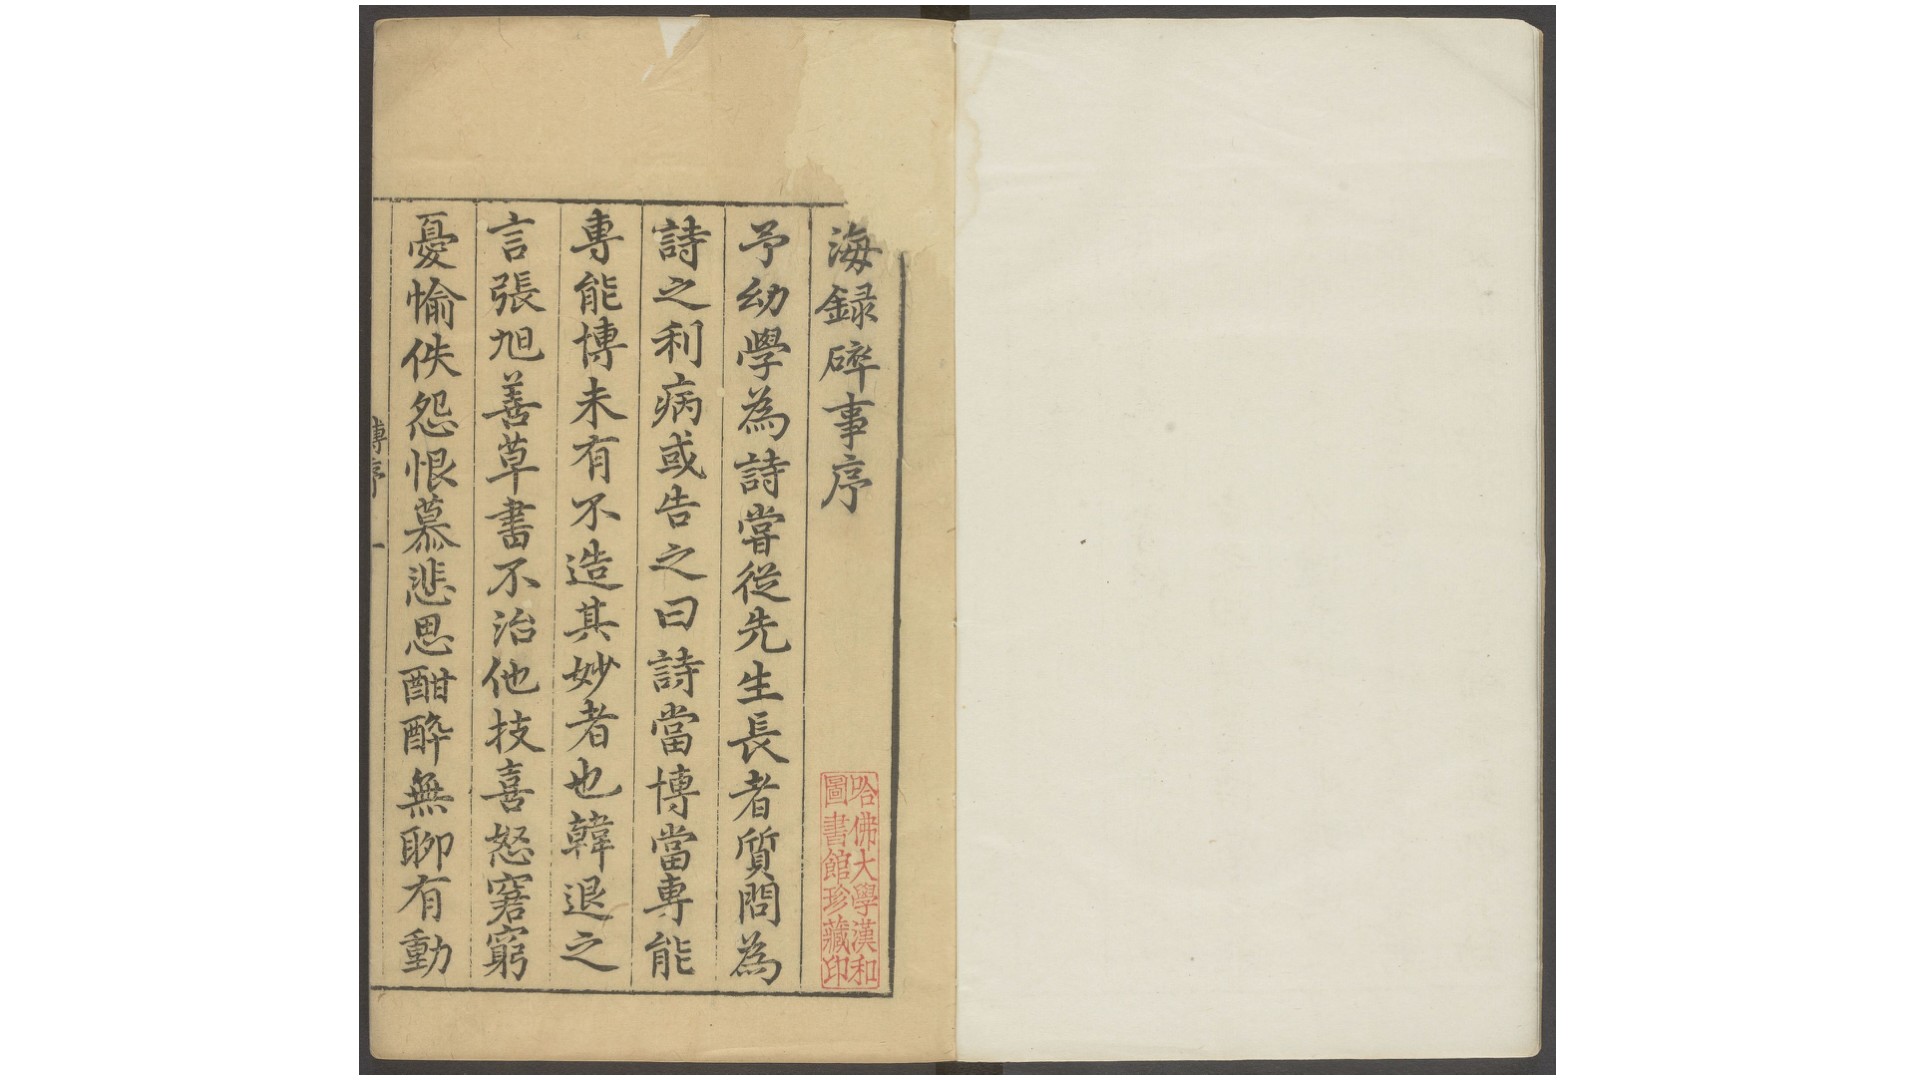 海錄碎事序
予幼學為詩嘗從先生長者質問為
詩之利病或告之曰詩當博當專能
專能博未有不造其妙者也韓退之
言張旭善草書不治他技喜怒窘窮
憂愉佚怨恨慕悲思酣醉無聊有動
傅序
一
哈佛大學漢和
圖書館珍藏印